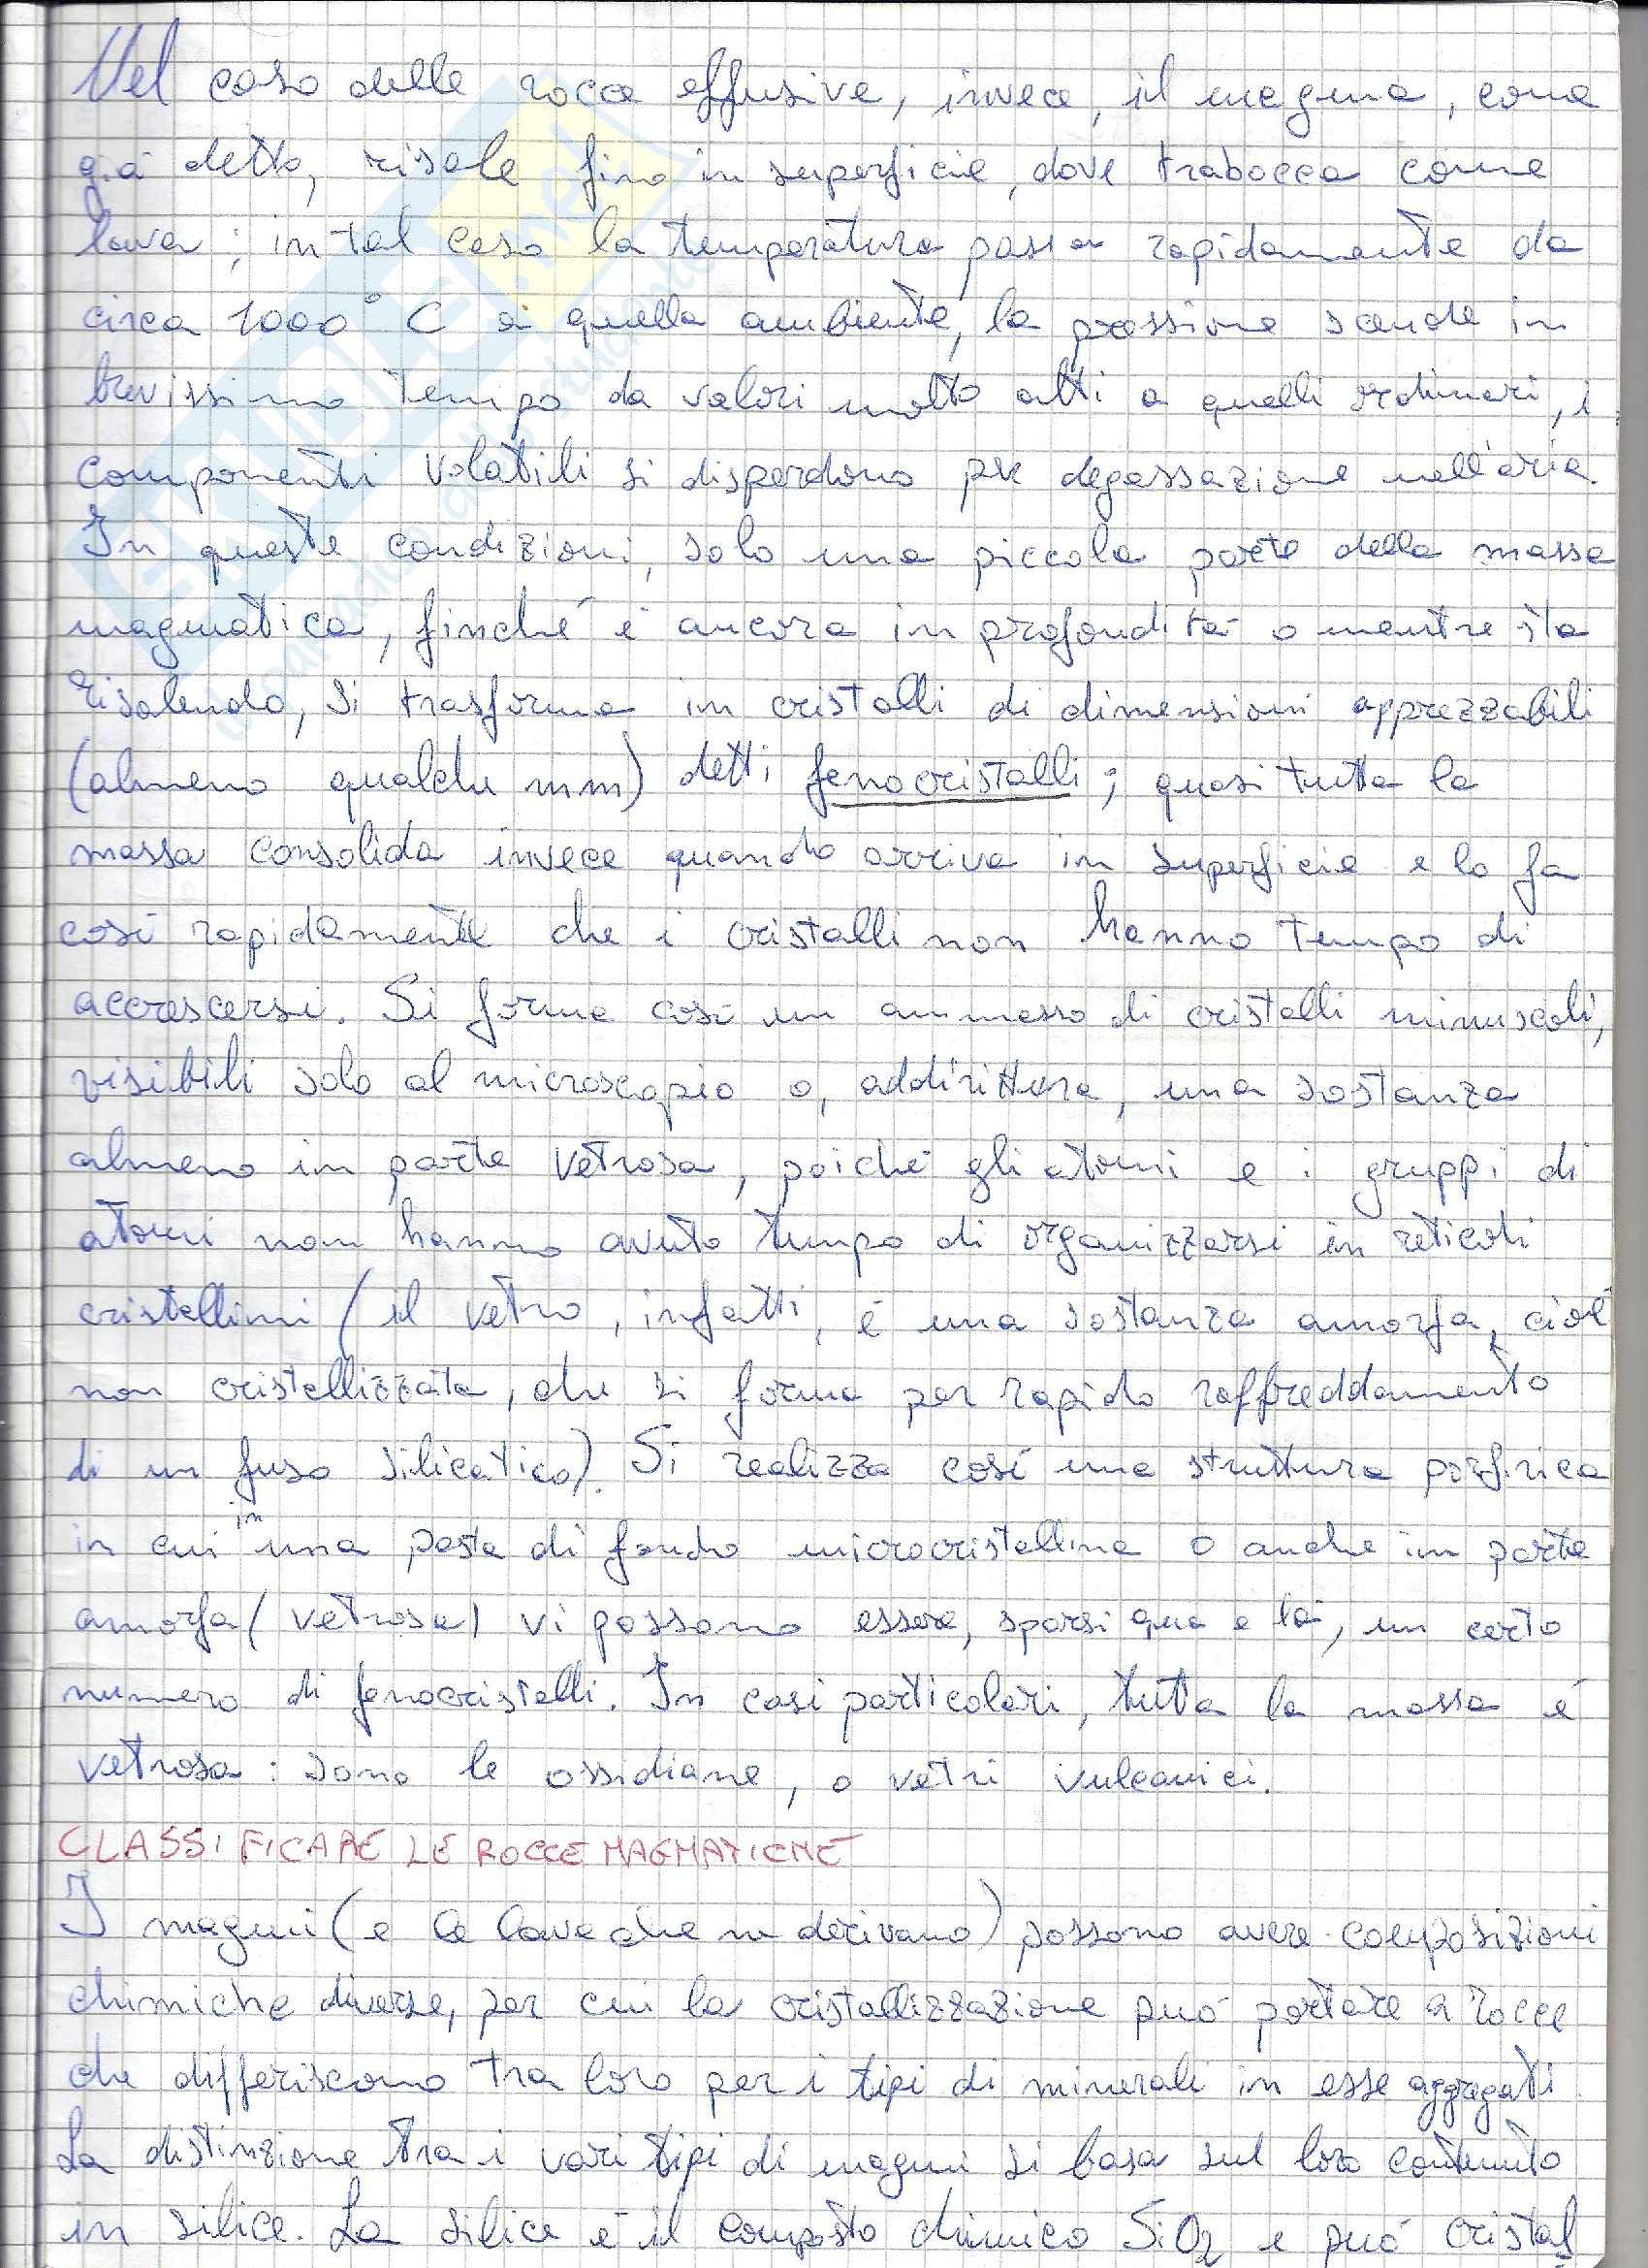 Nel caso delle rocce effusive, invece, il magma, come
già detto, risale fino in superficie, dove trabocca come
lava; in tal caso la temperatura passa rapidamente da
circa 1000° C a quella ambiente, la pressione scende in
brevissimo tempo da valori molto alti a quelli ordinari, i
componenti volatili si disperdono per degassazione nell'aria.
In queste condizioni, solo una piccola parte della massa
magmatica, finché è ancora in profondità o mentre sta
risalendo, si trasforma in cristalli di dimensioni apprezzabili
(almeno qualche mm) detti fenocristalli; quasi tutta la
massa consolida invece quando arriva in superficie e lo fa
così rapidamente che i cristalli non hanno tempo di
accrescersi. Si forma così un ammasso di cristalli minuscoli,
visibili solo al microscopio o, addirittura, una sostanza
almeno in parte vetrosa, poiché gli atomi e i gruppi di
atomi non hanno avuto tempo di organizzarsi in reticoli
cristallini (il vetro, infatti, è una sostanza amorfa, cioè
non cristallizzata, che si forma per rapido raffreddamento
di un fuso silicatico). Si realizza così una struttura porfirica
in cui in una pasta di fondo microcristallina o anche in parte
amorfa (vetrosa) vi possono essere, sparsi qua e là, un certo
numero di fenocristalli. In casi particolari, tutta la massa è
vetrosa: sono le ossidiane, o vetri vulcanici.
CLASSIFICARE LE ROCCE MAGMATICHE
I magmi (e le lave che ne derivano) possono avere composizioni
chimiche diverse, per cui la cristallizzazione può portare a rocce
che differiscono tra loro per i tipi di minerali in esse aggregati
La distinzione tra i vari tipi di magmi si basa sul loro contenuto
in silice. La silice è il composto chimico SiO2 e può cristal